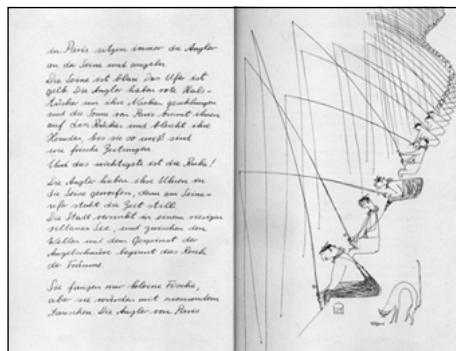 in Paris sitzen immer die Angler
an der Seine und angeln.
Die Seine ist blau. Das Ufer ist
gelb. Die Angler haben rote Hals-
tücher um ihre Nacken geschlungen
und die Sonne von Paris brennt ihnen
auf den Rücken und bleicht ihre
Hemden, bis sie so weiß sind
wie frische Zeitungen.
Und das wichtigste ist die Ruhe!
Die Angler haben ihre Uhren in
die Seine geworfen, denn am Seine-
ufer steht die Zeit still.
Die Stadt versinkt in einem riesigen
silbernen See, und zwischen den
Wellen und dem Gespinst der
Angelschnüre beginnt das Reich
der Träume.
Sie fangen nur kleine Fische,
aber sie würden mit niemandem
tauschen. Die Angler von Paris